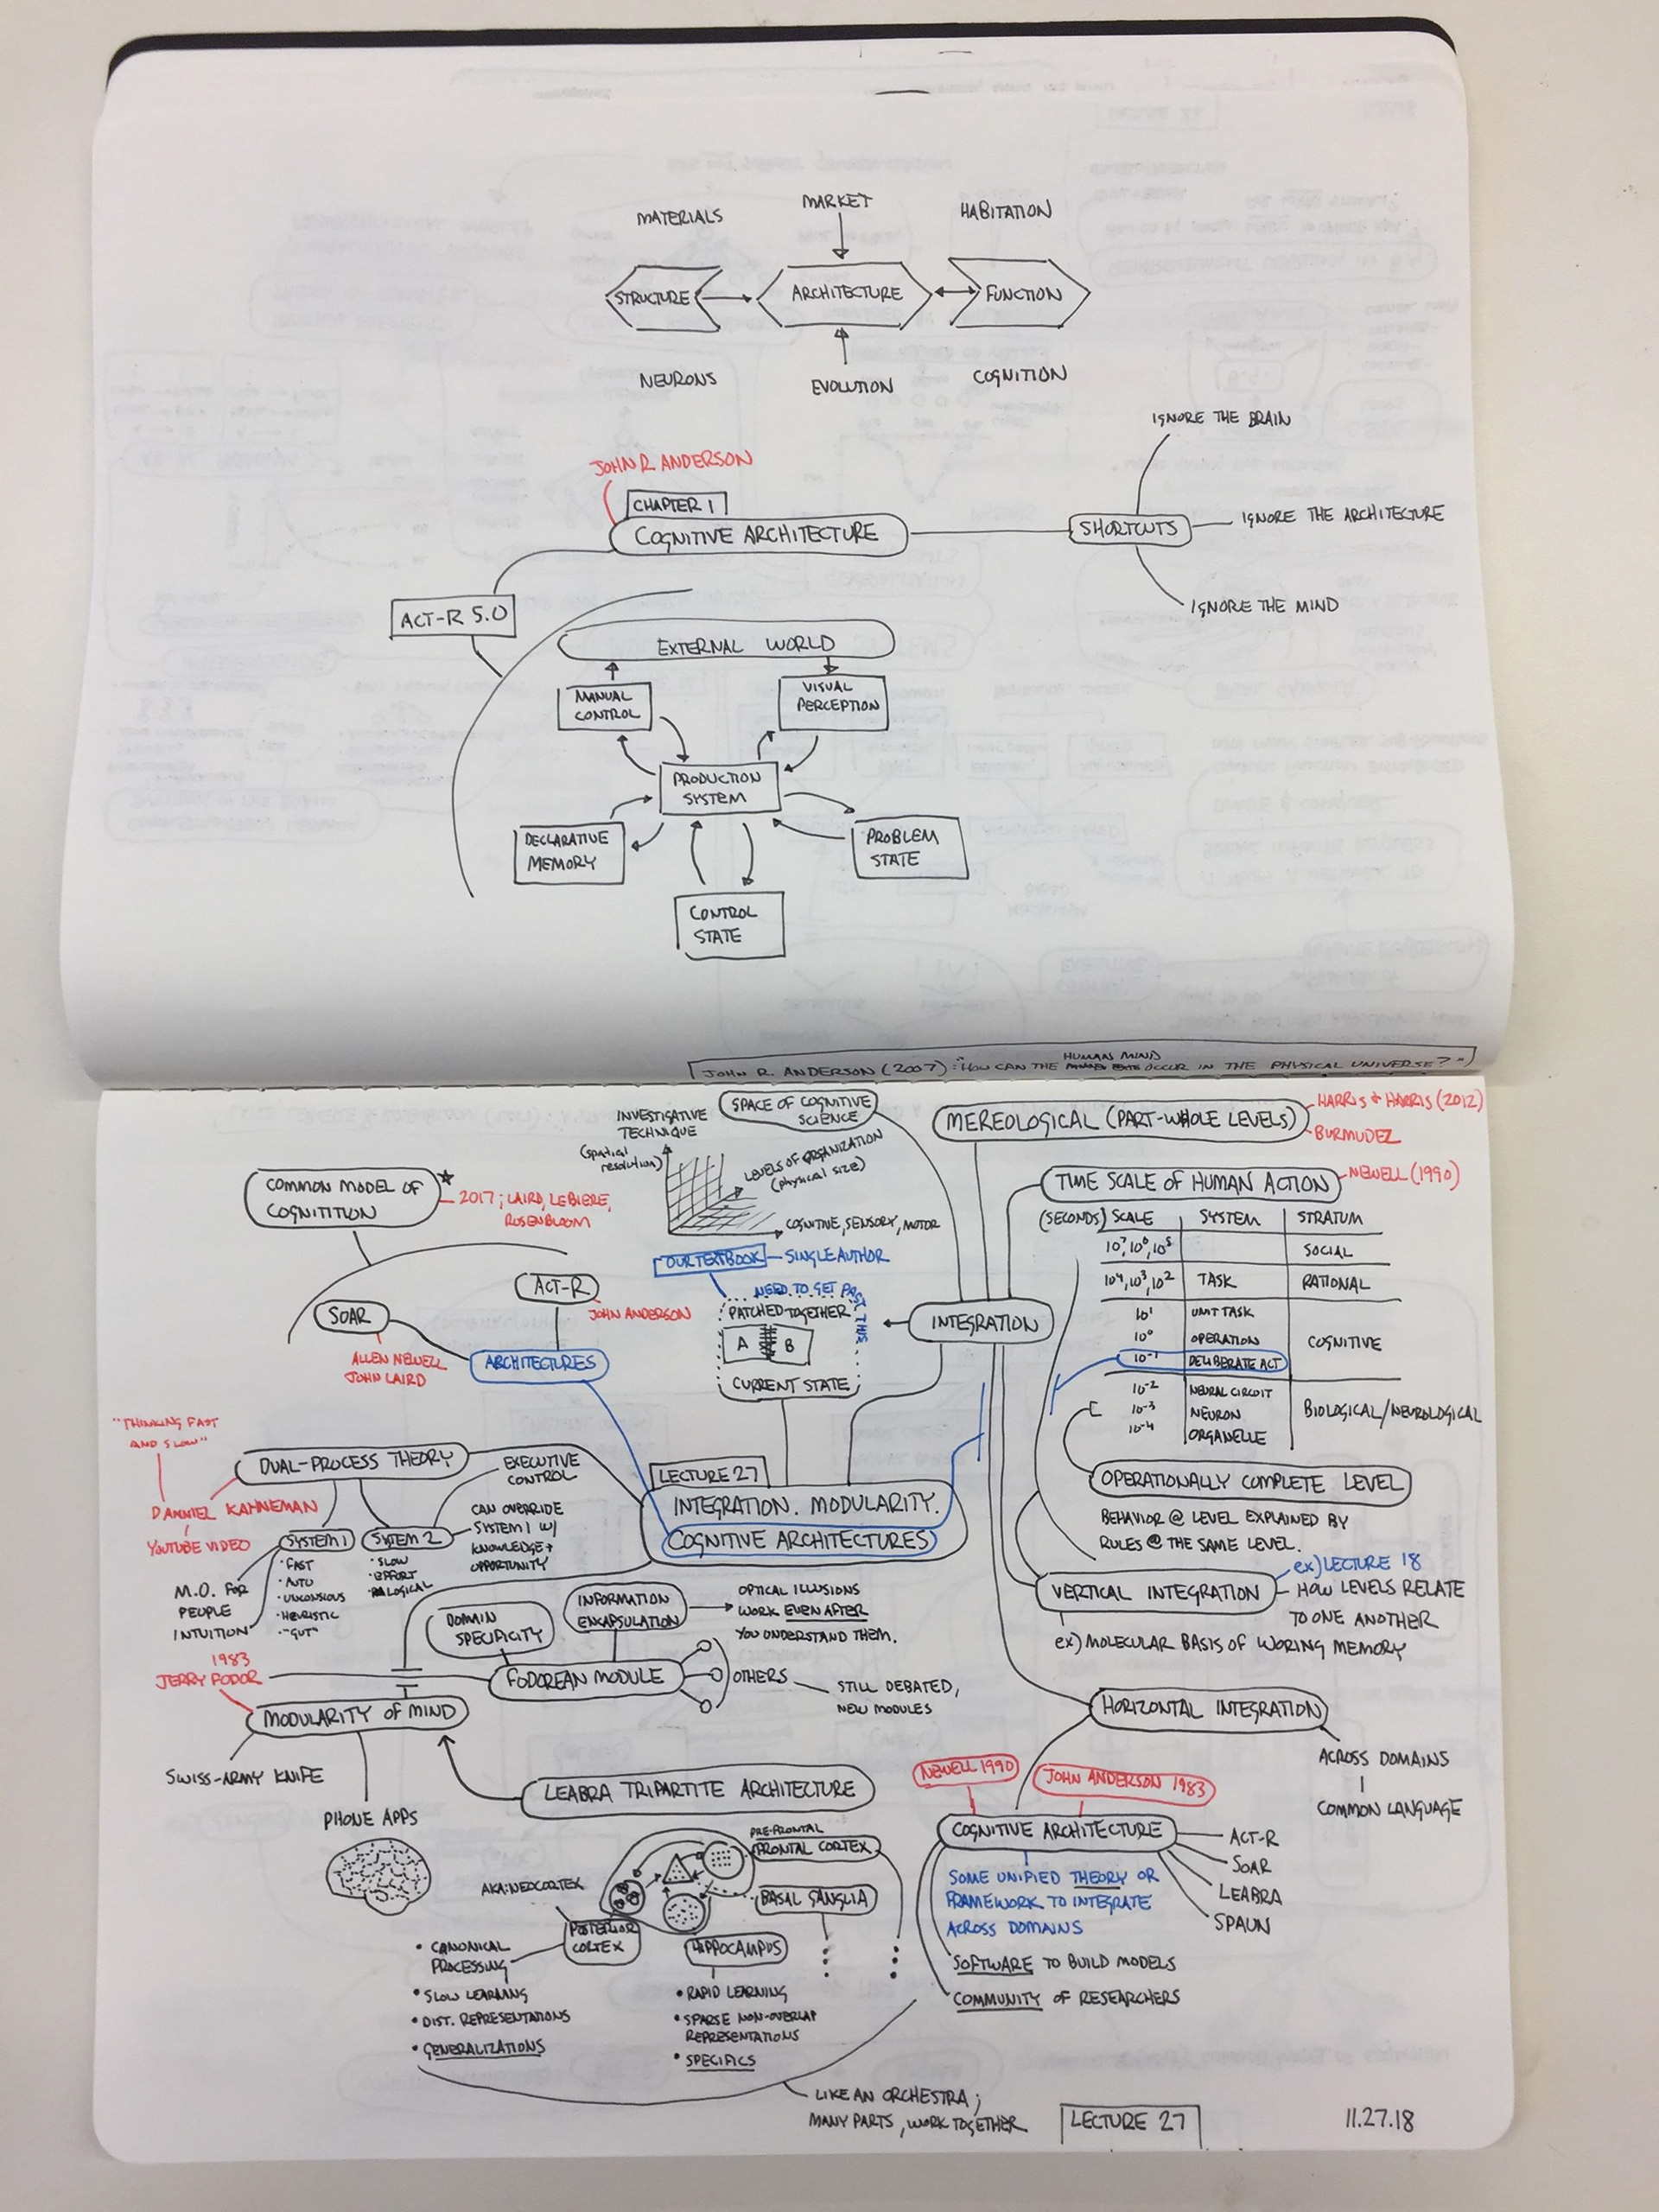 MATERIALS
MARKET
HABITATION
STRUCTURE
ARCHITECTURE
FUNCTION
NEURONS
EVOLUTION
COGNITION
IGNORE THE BRAIN
JOHN R. ANDERSON
CHAPTER 1
COGNITIVE ARCHITECTURE
SHORTCUTS
IGNORE THE ARCHITECTURE
IGNORE THE MIND
ACT-R 5.0
EXTERNAL WORLD
MANUAL
CONTROL
VISUAL
PERCEPTION
PRODUCTION
SYSTEM
DECLARATIVE
MEMORY
PROBLEM
STATE
CONTROL
STATE
HUMAN MIND
JOHN R. ANDERSON (2007): "HOW CAN THE OCCUR IN THE PHYSICAL UNIVERSE?"
SPACE OF COGNITIVE
SCIENCE
INVESTIGATIVE
TECHNIQUE
(spatial
resolution)
LEVELS OF ORGANIZATION
(physical size)
COGNITIVE, SENSORY, MOTOR
MEREOLOGICAL (PART-WHOLE LEVELS)
HARRIS & HARRIS (2012)
BURMUDEZ
COMMON MODEL OF
COGNITITION
2017; LAIRD, LEBIERE,
ROSENBLOOM
TIME SCALE OF HUMAN ACTION
NEWELL (1990)
(SECONDS) SCALE SYSTEM STRATUM
10⁷, 10⁶, 10⁵ SOCIAL
10⁴, 10³, 10² TASK RATIONAL
10¹ UNIT TASK
10⁰ OPERATION
COGNITIVE
10⁻¹ DELIBERATE ACT
10⁻² NEURAL CIRCUIT
10⁻³ NEURON
BIOLOGICAL/NEUROLOGICAL
10⁻⁴ ORGANELLE
OUR TEXTBOOK - SINGLE AUTHOR
NEED TO GET PAST THIS
PATCHED TOGETHER
A B
CURRENT STATE
INTEGRATION
SOAR
ACT-R
JOHN ANDERSON
ALLEN NEWELL
JOHN LAIRD
ARCHITECTURES
"THINKING FAST
AND SLOW"
DUAL-PROCESS THEORY
DANNIEL KAHNEMAN
YOUTUBE VIDEO
EXECUTIVE
CONTROL
SYSTEM 1
SYSTEM 2
CAN OVERRIDE
SYSTEM 1 W/
KNOWLEDGE +
OPPORTUNITY
• FAST
• AUTO
• UNCONSIOUS
• HEURISTIC
• "GUT"
• SLOW
• EFFORT
LOGICAL
M.O. FOR
PEOPLE
INTUITION
LECTURE 27
INTEGRATION. MODULARITY.
COGNITIVE ARCHITECTURES
OPERATIONALLY COMPLETE LEVEL
BEHAVIOR @ LEVEL EXPLAINED BY
RULES @ THE SAME LEVEL.
ex) LECTURE 18
VERTICAL INTEGRATION
HOW LEVELS RELATE
TO ONE ANOTHER
ex) MOLECULAR BASIS OF WORING MEMORY
DOMAIN
SPECIFICITY
INFORMATION
ENCAPSULATION
OPTICAL ILLUSIONS
WORK EVEN AFTER
YOU UNDERSTAND THEM.
1983
JERRY FODOR
FODOREAN MODULE
OTHERS
STILL DEBATED,
NEW MODULES
MODULARITY OF MIND
SWISS-ARMY KNIFE
PHONE APPS
HORIZONTAL INTEGRATION
ACROSS DOMAINS
COMMON LANGUAGE
LEABRA TRIPARTITE ARCHITECTURE
NEWELL 1990
JOHN ANDERSON 1983
COGNITIVE ARCHITECTURE
ACT-R
SOAR
LEABRA
SPAUN
SOME UNIFIED THEORY OR
FRAMEWORK TO INTEGRATE
ACROSS DOMAINS
SOFTWARE TO BUILD MODELS
COMMUNITY OF RESEARCHERS
PRE-FRONTAL
FRONTAL CORTEX
BASAL GANGLIA
AKA: NEOCORTEX
POSTERIOR
CORTEX
HIPPOCAMPUS
• CANONICAL
PROCESSING
• SLOW LEARNING
• DIST. REPRESENTATIONS
• GENERALIZATIONS
• RAPID LEARNING
• SPARSE NON-OVERLAP
REPRESENTATIONS
• SPECIFICS
LIKE AN ORCHESTRA;
MANY PARTS, WORK TOGETHER
LECTURE 27
11.27.18